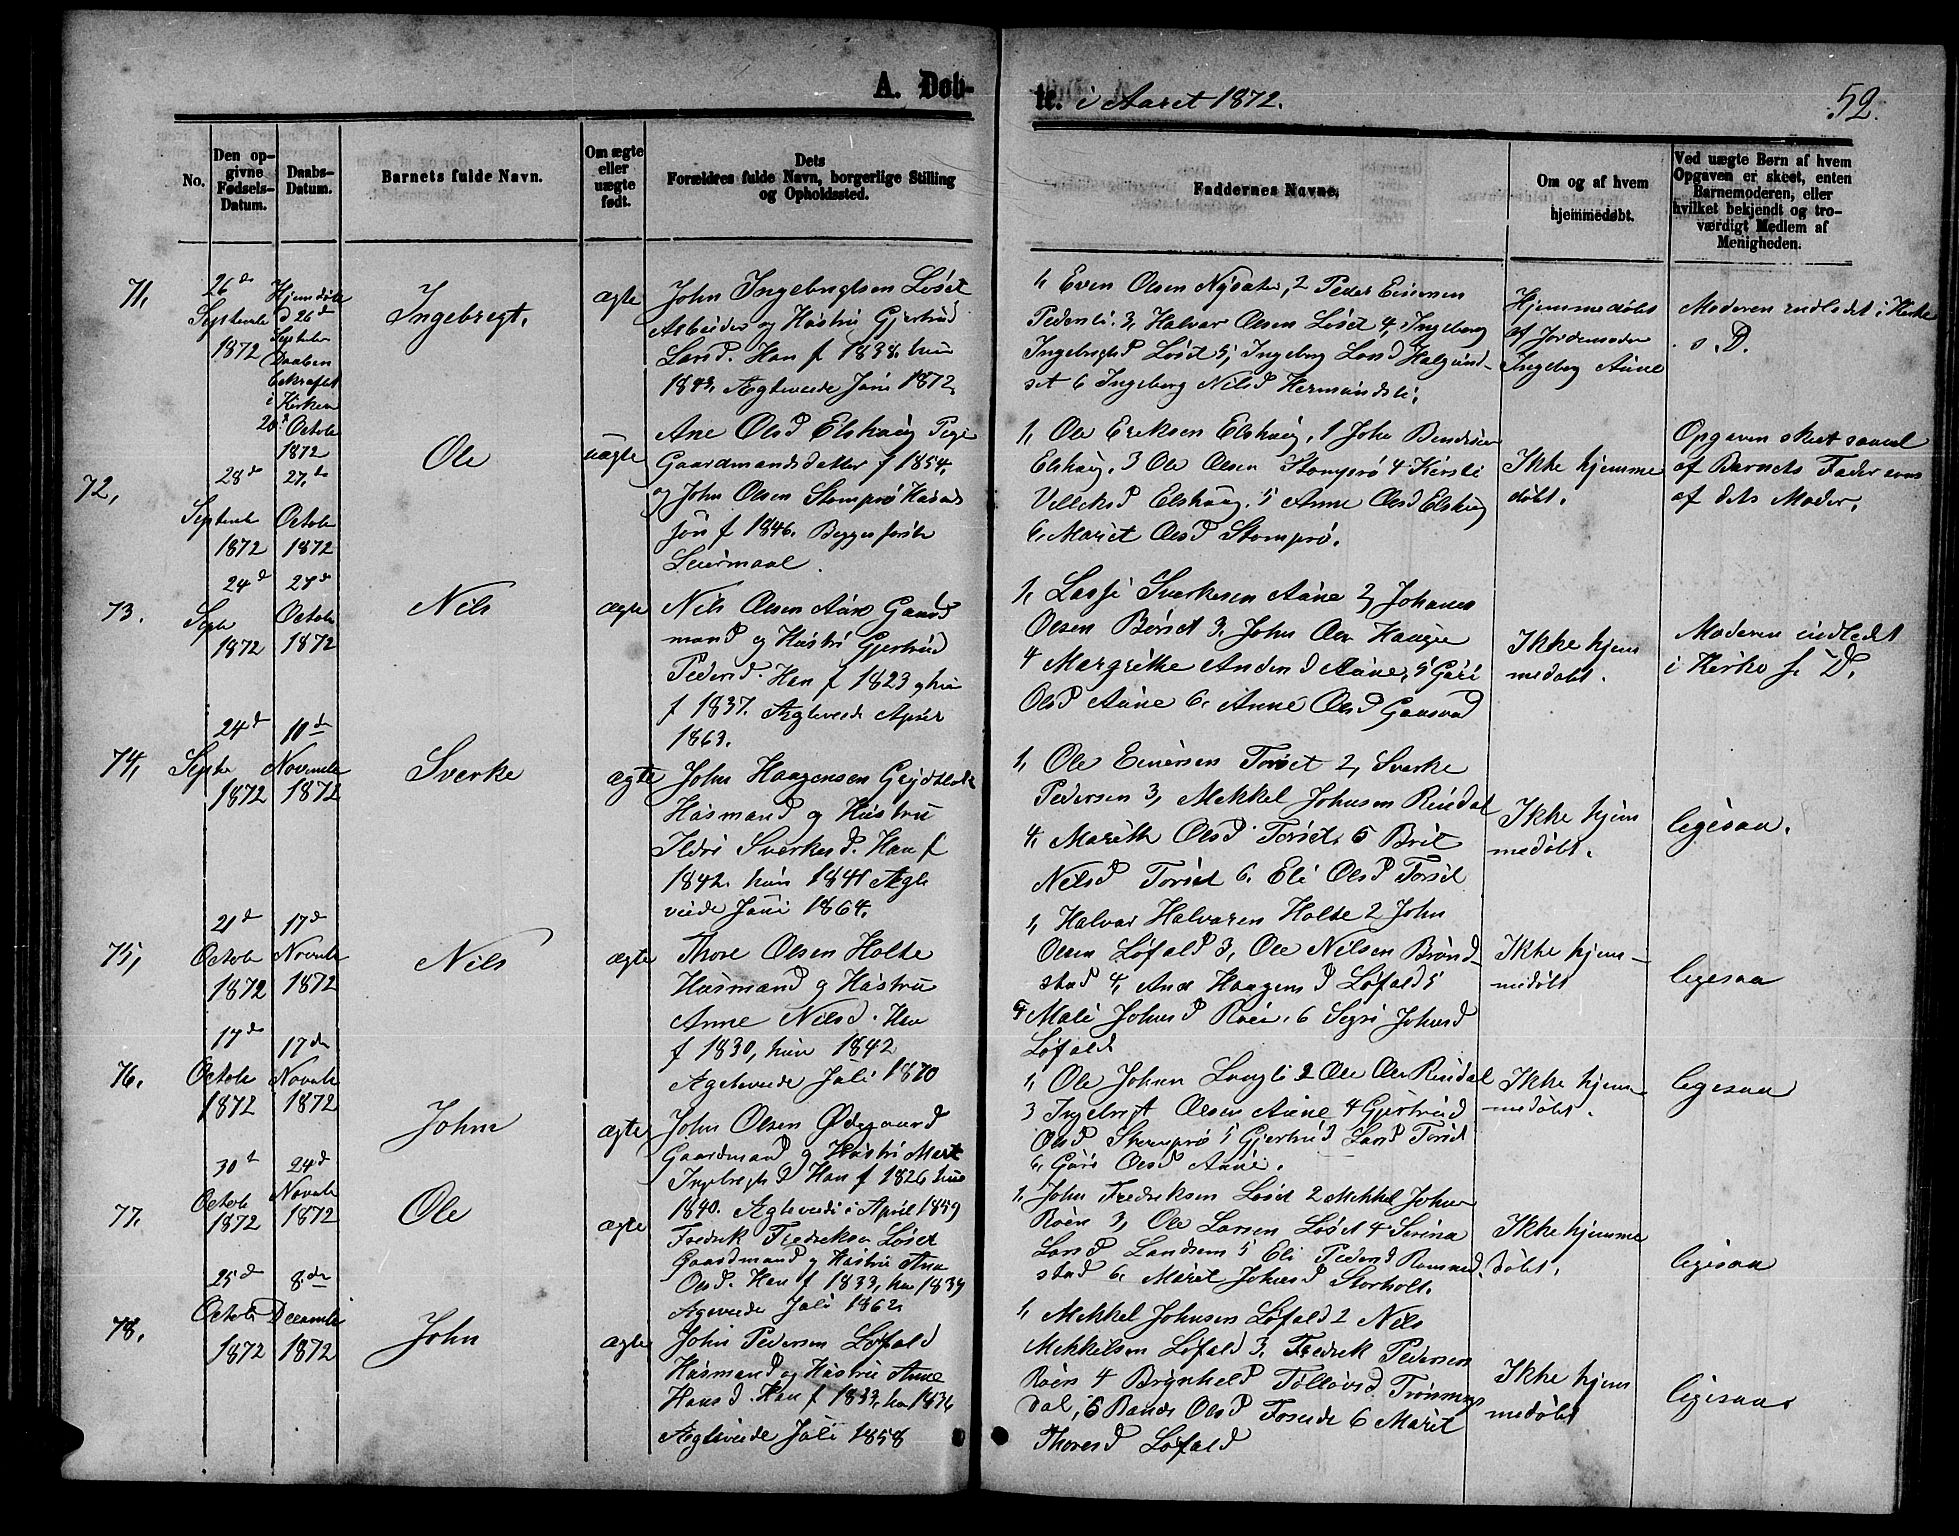 A. Døb-
te. i Aaret 1872.
52.
No.
Den op-
givne
Fødsels-
Datum.
Daabs-
Datum.
Barnets fulde Navn.
Om ægte
eller
uægte
født.
Dets
Forældres fulde Navn, borgerlige Stilling
og Opholdssted.
Faddernes Navne.
Om og af hvem
hjemmedøbt.
Ved uægte Børn af hvem
Opgaven er skeet, enten
Barnemoderen, eller
hvilket bekjendt og tro-
værdigt Medlem af
Menigheden.
71,
26de
Septembe
1872
Hjemdøbt
d 26de
Septebr
Daaben
bekræftet
i
Kirken
20de Octob
1872
Ingebregt.
ægte
John Ingebrigtsen Løset
Arbeider og Hustru Gjertrud
Larsd. Han f 1838, hun
1843. Ægteviede Juni 1872,
1, Even Olsen Nysæter, 2 Peder Einersen
Pedersli, 3, Halvar Olsen Løset 4, Ingeborg
Ingebrigtsd Løset 5, Ingeborg Larsd Halgund-
set 6 Ingeborg Nilsd Hermandsli.
Hjemmedøbt
af Jordemoder
Ingeborg Aune
Moderen indledet i Kirke
s. D.
72,
28de
Septembe
1872
27de
Octobe
1872
Ole
uægte
Ane Olsd Elshaug Pige
Gaardmandsdatter f 1854,
og John Olsen Stomprø Husmds
søn f 1846. Begges første
Leiermaal.
1, Ole Eriksen Elshaug, 1 John Bendixsen
Elshaug, 3 Ole Olsen Stomprø 4 Kirsti
Elshaug, 5 Anne Olsd Elshaug
6, Maret Olsd Stomprø.
Ikke hjemme
døbt.
Opgaven skeet saavel
af Barnets Fader som
af dets Moder.
73.
24d
Septe
1872
27de
Octobe
1872
Nils
ægte
Nils Olsen Aune Gaard
mand og Hustru Gjertrud
Pedersd. Han f 1823 og hun
f 1837. Ægteviede April
1863.
1, Lasse Sverkesen Aune 2, Johanes
Olsen Børset 3, John Olsen Haugen
4 Margrethe Andersd Aune, 5 Guri
Olsd Aune 6, Anne Olsd Gaasvad
Ikke hjem
medøbt.
Moderen indledt
i Kirke s. D.
74,
24de
Septbe
1872
10de
Novembe
1872
Sverke
ægte
John Haagensen
Husmand og Hustru
Ildri Sverkesd. Han f
1842, hun 1841 Ægte
viede Juni 1864.
1, Ole Einersen Torset 2, Sverke
Pedersen 3, Mekkel Johnsen Rindal
4, Marith Olsd Torset 5 Brit
Nilsd Torset 6, Eli Olsd Torset
Ikke hjem
medøbt.
ligesaa.
75,
21de
Octobe
1872
17de
Novembe
1872
Nils
ægte
Thore Olsen Holte
Husmand og Hustru
Anne Nilsd. Han
f 1830, hun 1842
Ægteviede Juli 1870
1, Halvar Halvarsen Holte 2 John
Olsen Løfald 3, Ole Nilsen Brønd-
stad 4, Ane Haagensd Løfald 5
5 Mali Johnsd Røen, 6 Segri Johnsd
Løfald.
Ikke hjem-
medøbt
ligesaa
76.
17de
Octobe
1872
17de
Novebe
1872
John
ægte
John Olsen Ødegaard
Gaardmand og Hustru Maret
Ingebregtsd Han f 1826, hun
1840. Ægteviede i April 1859
1, Ole Johnsen Langli 2 Ole Olsen Rindal
3 Ingebrigt Olsen Aune 4 Gjertrud
Olsd Stomprø 5 Gjertrud Larsd Torset
6, Guri Olsd Aune.
Ikke hjem-
medøbt.
ligesaa
77.
30te
Octobe
1872
24de
Novembe
1872
Ole
ægte
Fredrik Fredriksen Løset
Gaardmand og Hustru Ane
Olsd. Han f 1833, hun 1839
Ægteviede Juli 1862.
1, John Fredriksen Løset 2 Mekkel Johnsen
Røen 3, Ole Larsen Løset 4 Serina
Larsd Landsem 5 Eli Pedersd Romund-
stad 6, Maret Johnsd Storholt.
Ikke hjemme
døbt.
ligesaa
78.
25de
Octobe
1872
8de
Decembe
1872
John
ægte
John Pedersen Løfald
Husmand og Hustru Anne
Hansd. Han f 1833, hun 1836
Ægteviede Juli 1858
1, Mekkel Johnsen Løfald 2 Nils
Mekkelsen Løfald 3, Fredrik Pedersen
Røen 4 Brynhild Tollevsd Trønnings
dal, 5 Olsd Foseide 6 Marit
Thoresd Løfald
Ikke hjem
medøbt
ligesaa.